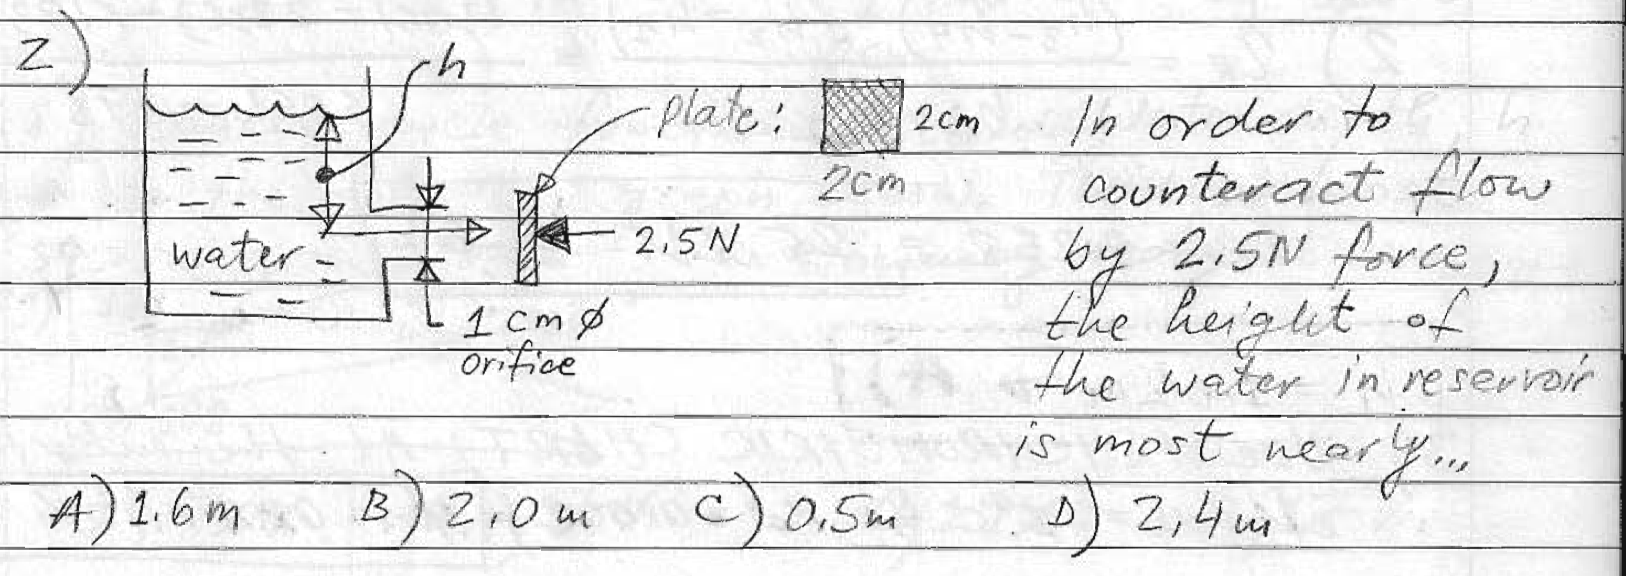 2)
h
plate:
2cm
2cm
In order to
counteract flow
by 2.5N force,
the height of
the water in reservoir
is most nearly...
water
2.5N
1 cm ϕ
orifice
A) 1.6m B) 2.0m C) 0.5m D) 2,4m